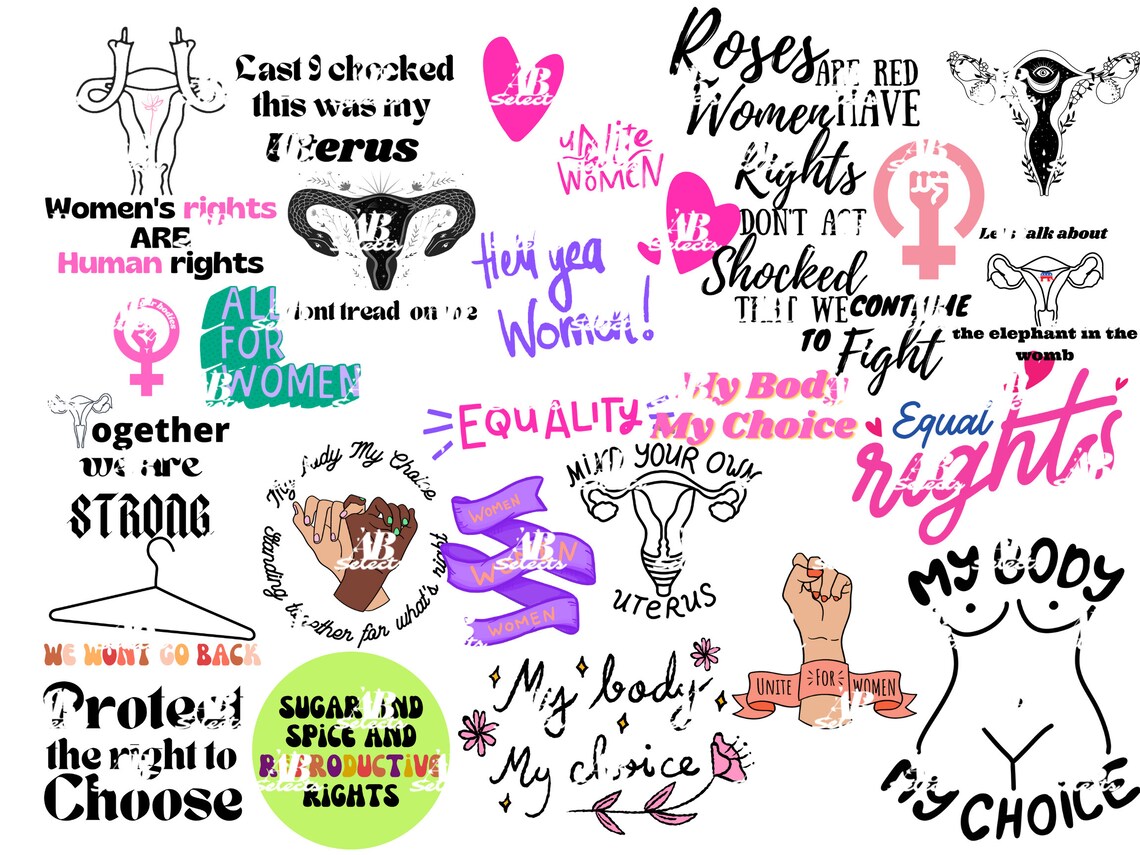 Last I checked
this was my
Uterus
dont tread on me
Women's rights
ARE
Human rights
ALL
FOR
WOMEN
AB
Selects
unite
WOMEN
Hell yea
Women!
Roses ARE RED
Women HAVE
Rights
DON'T ACT
Shocked
THAT WE CONTINUE
TO Fight
Let's talk about
the elephant in the
womb
Together
we are
STRONG
EQUALITY
My Body
My Choice
Equal
rights
My Body My Choice
Standing together for what's right
WOMEN
WOMEN
WOMEN
MIND YOUR OWN
UTERUS
WE WONT GO BACK
Protect
the right to
Choose
SUGAR AND
SPICE AND
REPRODUCTIVE
RIGHTS
My body
My choice
UNITE FOR WOMEN
MY BODY
MY CHOICE